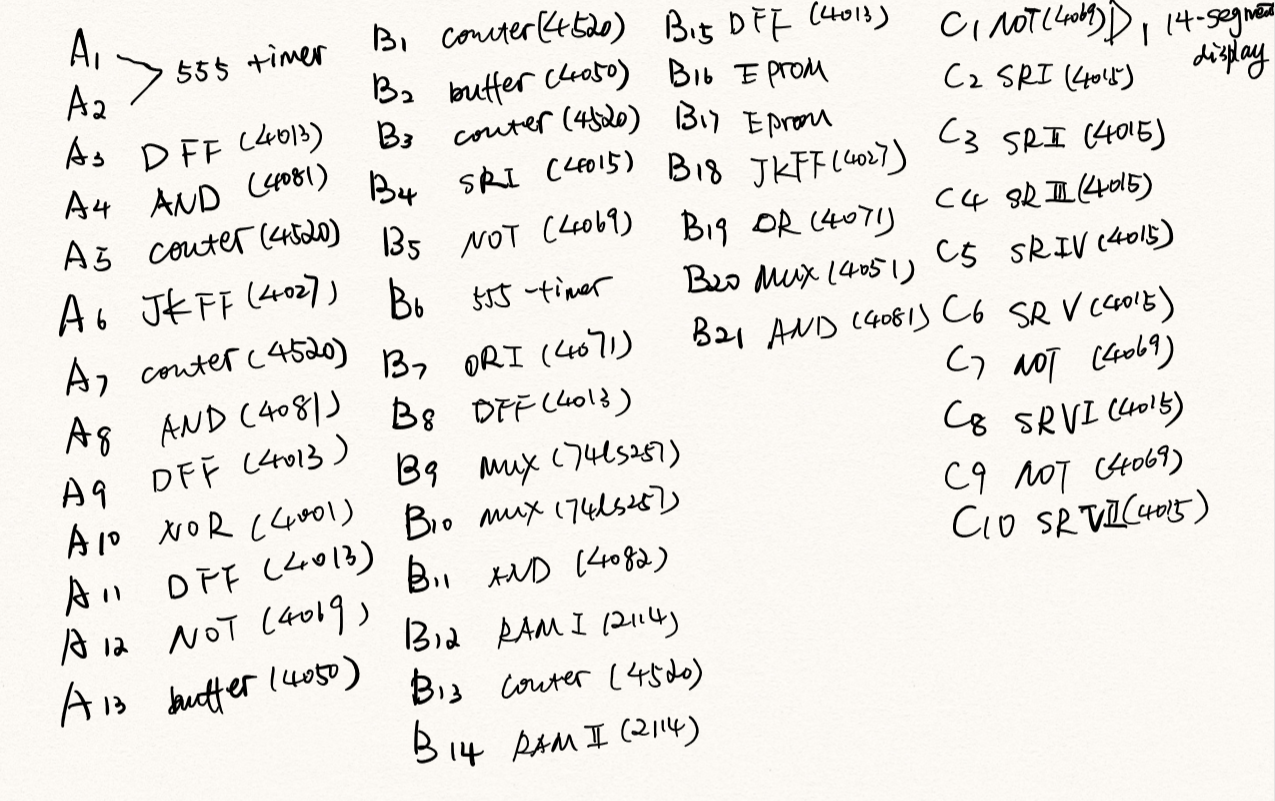 A1 555 timer
A2
A3 DFF (4013)
A4 AND (4081)
A5 couter (4520)
A6 JKFF (4027)
A7 couter (4520)
A8 AND (4081)
A9 DFF (4013)
A10 NOR (4001)
A11 DFF (4013)
A12 NOT (4069)
A13 buffer (4050)
B1 couter (4520)
B2 buffer (4050)
B3 couter (4520)
B4 SRI (4015)
B5 NOT (4069)
B6 555 timer
B7 ORI (4071)
B8 DFF (4013)
B9 MUX (74LS257)
B10 MUX (74LS257)
B11 AND (4082)
B12 RAM I (2114)
B13 couter (4520)
B14 RAM II (2114)
B15 DFF (4013)
B16 EPROM
B17 EPROM
B18 JKFF (4027)
B19 OR (4071)
B20 MUX (4051)
B21 AND (4081)
C1 NOT (4069)
C2 SRI (4015)
C3 SRII (4015)
C4 SRIII (4015)
C5 SRIV (4015)
C6 SRV (4015)
C7 NOT (4069)
C8 SRVI (4015)
C9 NOT (4069)
C10 SRVII (4015)
D1 14-segment
display